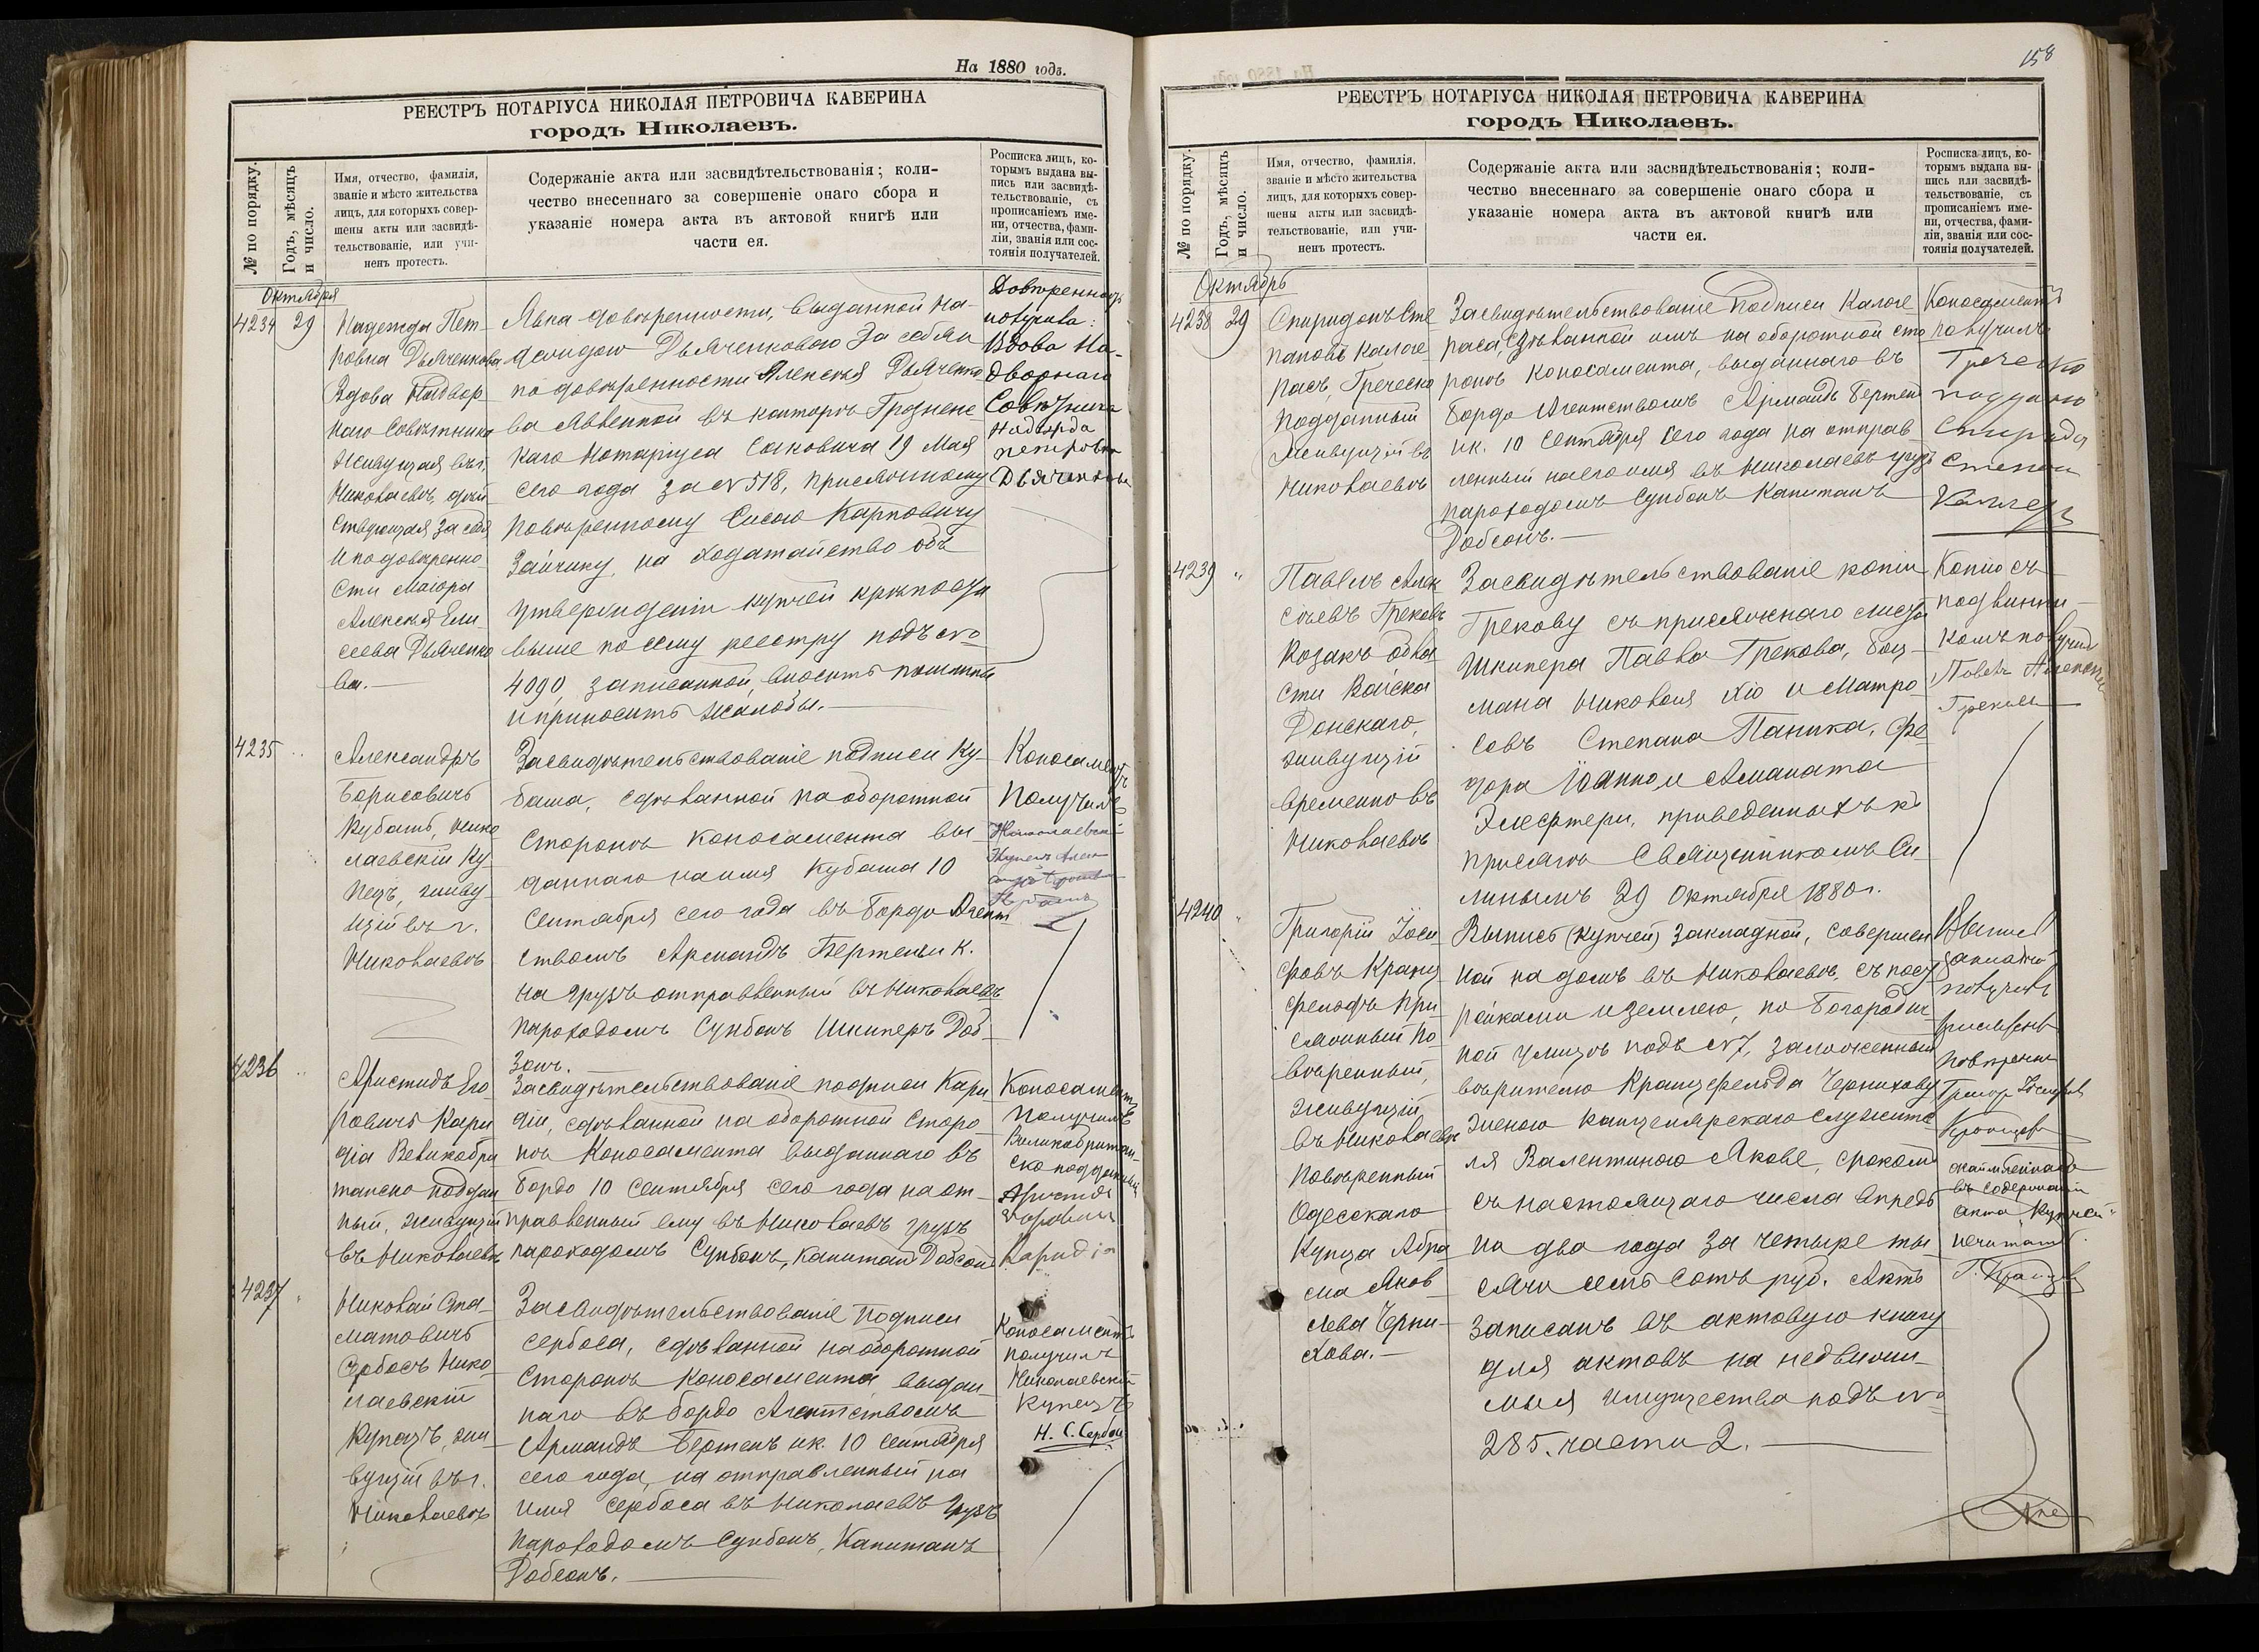 На 1880 годъ.
РЕЕСТРЪ НОТАРІУСА НИКОЛАЯ ПЕТРОВИЧА КАВЕРИНА
городъ Николаевъ.
№ по порядку.
Годъ, мѣсяцъ
и число.
Имя, отчество, фамилія,
званіе и мѣсто жительства
лицъ, для которыхъ совер-
шены акты или засвидѣ-
тельствованіе, или учи-
ненъ протестъ.
Содержаніе акта или засвидѣтельствованія; коли-
чество внесеннаго за совершеніе онаго сбора и
указаніе номера акта въ актовой книгѣ или
части ея.
Росписка лицъ, ко-
торымъ выдана вы-
пись или засвидѣ-
тельствованіе, съ
прописаніемъ име-
ни, отчества, фами-
ліи, званія или сос-
тоянія получателей.
Октября
4234 29
Надежда Пет-
ровна Дьяченкова
Вдова Надвор-
наго Совѣтника
Живущая въ г.
Николаевѣ, дѣй
ствующая за себя
и по довѣренно
сти Маіора
Алексѣя Ели-
сеева Дьяченко
ва.—
Явка довѣренности, выданной На-
деждою Дьяченковою За себя и
по довѣренности Алексѣя Дьяченко
ва явленной въ конторѣ Грознен-
каго Нотаріуса 19 Мая
сего года за № 518, присяжному
повѣренному Сисою Карповичу
Зайчику, на ходатайство объ
утвержденіи купчей крѣпости
выше по сему реестру подъ №
4090, записанной, вносить пошлины
и приносить жалобы.—
Довѣренность
получила:
Вдова На-
дворнаго
Совѣтника
Надежда
Петровна
Дьяченкова
4235
Александръ
Борисовичъ
Кубашъ, Нико
лаевскій Ку
пецъ, живу
щій въ г.
Николаевѣ
Засвидѣтельствованіе подписи Ку-
баша, сдѣланной на оборотной
Сторонѣ коносамента вы
даннаго на имя Кубаша 10
Сентября сего года въ Бордо Агент
ствомъ Армандъ Бертень и К.
на грузъ отправленный въ Николаевъ
пароходомъ Сунбонъ Шкиперъ Доб-
зонъ.
Коносаментъ
Получилъ
Николаевскій
Купецъ Алек
4236
Аристидъ Его
ровичъ Кари
діа Великобри
танско поддан
ный, живущій
въ Николаевѣ
Засвидѣтельствованіе подписи Кари
діи, сдѣланной на оборотной Сторо
нѣ Коносамента выданнаго въ
Бордо 10 Сентября сего года на от-
правленный ему въ Николаевъ грузъ
пароходомъ Сунбонъ, Капитанъ Добсонъ
Коносаментъ
Получилъ
Великобритан-
ско подданный
Аристидъ
Егоровичъ
Каридіа
4237
Николай Ста-
матовичъ
Сербосъ Нико
лаевскій
Купецъ, жи-
вущій въ г.
Николаевѣ
Засвидѣтельствованіе подписи
Сербоса, сдѣланной на оборотной
Сторонѣ Коносамента, выдан-
наго въ Бордо Агентствомъ
Армандъ Бертень и К. 10 Сентября
сего года, на отправленный на
имя Сербоса въ Николаевъ грузъ
Пароходомъ Сунбонъ, Капитанъ
Добсонъ.—
Коносаментъ
получилъ
Николаевскій
Купецъ
Н. С. Сербосъ
158
РЕЕСТРЪ НОТАРІУСА НИКОЛАЯ ПЕТРОВИЧА КАВЕРИНА
городъ Николаевъ.
№ по порядку.
Годъ, мѣсяцъ
и число.
Имя, отчество, фамилія,
званіе и мѣсто жительства
лицъ, для которыхъ совер-
шены акты или засвидѣ-
тельствованіе, или учи-
ненъ протестъ.
Содержаніе акта или засвидѣтельствованія; коли-
чество внесеннаго за совершеніе онаго сбора и
указаніе номера акта въ актовой книгѣ или
части ея.
Росписка лицъ, ко-
торымъ выдана вы-
пись или засвидѣ-
тельствованіе, съ
прописаніемъ име-
ни, отчества, фами-
ліи, званія или сос-
тоянія получателей.
Октябрь
4238 29
Спиридонъ Сте
пановъ Калоге
расъ, Греческо
подданный
Живущій въ
Николаевѣ
Засвидѣтельствованіе подписи Калоге
раса, сдѣланной имъ на оборотной сто
ронѣ Коносамента, выданнаго въ
Бордо Агентствомъ Армандъ Бертень
и К. 10 Сентября сего года на отправ-
ленный на его имя въ Николаевъ грузъ
пароходомъ Сунбонъ Капитанъ
Добсонъ.—
Коносаментъ
получилъ
Греческо
4239 "
Павелъ Алек
сѣевъ Грековъ
Козакъ обла
сти Войска
Донскаго,
живущій
временно въ
Николаевѣ
Засвидѣтельствованіе копіи
Грекову съ присяжнаго листа
Шкипера Павла Грекова, боц-
мана Николая Хіо и Матро
совъ Степана Паника, Фе
дора Іоанно и Аманата
Элефтери, приведенныхъ къ
присягѣ Священникомъ Си
линымъ 29 Октября 1880 г.
Копію съ
подлинни-
комъ получилъ
Павелъ Алексѣевъ
Грековъ
4240
Григорій Іоси
фовъ Кранц
фельдъ При
сяжный по
вѣренный,
живущій
въ Николаевѣ
повѣренный
Одесскаго
Купца Абра
ма Яков
лева Черни-
хова.—
Выпись (купчей) закладной, совершен
ной на домъ въ Николаевѣ, съ пост
ройками и землею, по Богородич
ной улицѣ подъ № 7, заложенный
вѣрителю Кранцфельда Чернихову
женою канцелярскаго служите
ля Валентиною Якове, срокомъ
съ настоящаго числа впредь
на два года за четыре ты
сячи семь сотъ руб. Актъ
записанъ въ актовую книгу
для актовъ на недвижи-
мыя имущества подъ №
285. части 2.—
Выпись
закладной
получилъ
присяжный
повѣренный
Григор. Іосифовъ
въ содержаніи
акта „Купчей"
нечитать.